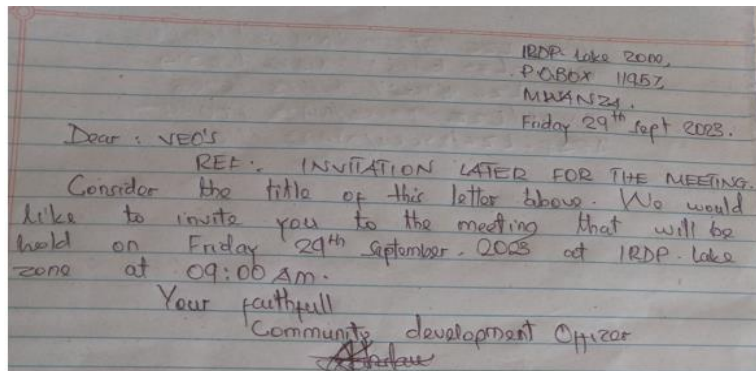 IRDP-Lake Zone,
P.O.BOX 11957,
MWANZA.
Friday 29th Sept 2023.
Dear : VEO'S
REF:. INVITATION LATER FOR THE MEETING.
Consider the title of this letter above. We would
like to invite you to the meeting that will be
held on Friday 29th September. 2023 at IRDP-Lake
zone at 09:00 AM.
Your faithfull
Community development Officer